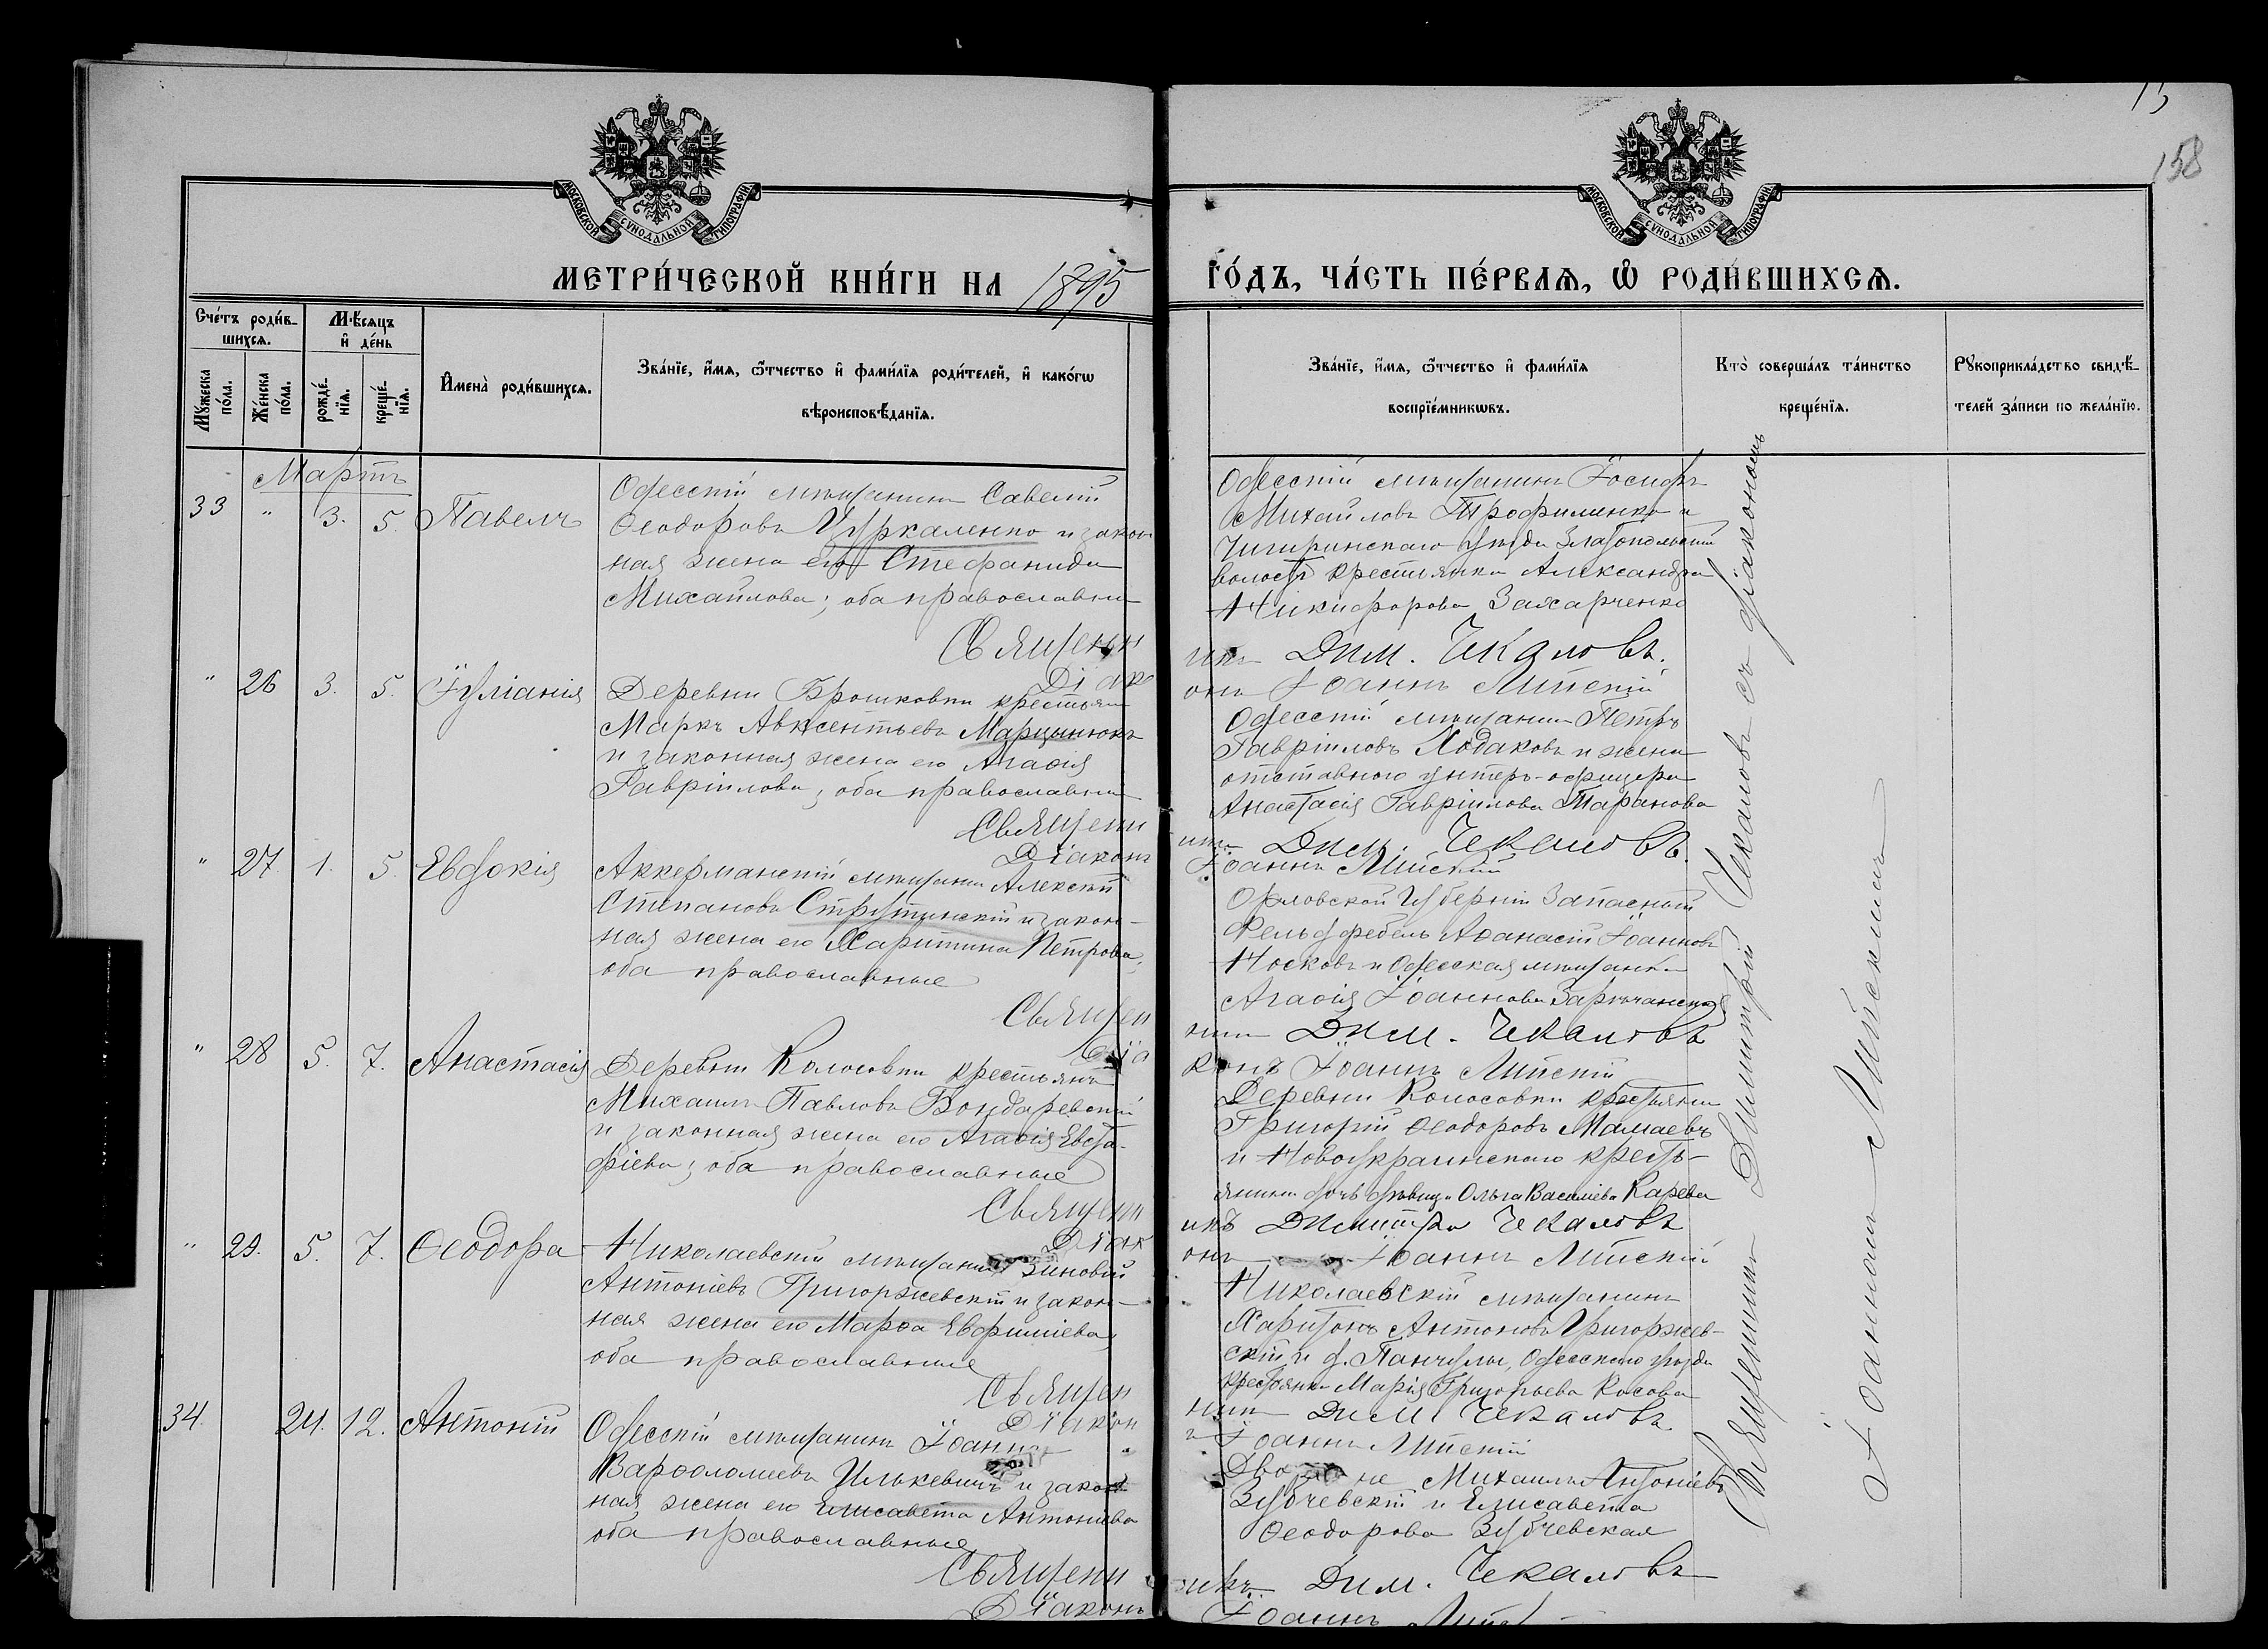 15
158
МОСКОВСКОЙ СѴНОДАЛЬНОЙ ТИПОГРАФІИ
МОСКОВСКОЙ СѴНОДАЛЬНОЙ ТИПОГРАФІИ
МЕТРИ́ЧЕСКОЙ КНИ́ГИ НА 1895 ГО́ДЪ, ЧА́СТЬ ПЕ́РВАѦ, Ѡ҆ РОДИ́ВШИХСѦ.
Сче́тъ роди́в-
шихсѧ.
Мꙋ́жеска по́ла.
Же́нска по́ла.
Мѣ́сѧцъ и҆ де́нь
рожде́-нїѧ.
креще́-нїѧ.
И҆мена̀ роди́вшихсѧ.
Зва́нїе, и҆́мѧ, ѻ҆́тчество и҆ фами́лїѧ роди́телей, и҆ како́гѡ
вѣроисповѣ́данїѧ.
Зва́нїе, и҆́мѧ, ѻ҆́тчество и҆ фами́лїѧ
воспрїе́мникѡвъ.
Кто̀ соверша́лъ та́инство
креще́нїѧ.
Рꙋкоприкла́дство свидѣ́-
телей за́писи по жела́нїю.
Мартъ
33 " 3. 5. Павелъ
Одесскій мѣщанинъ Савелій
Ѳеодоровъ Цуркаленко и закон
ная жена его Стефанида
Михайлова; оба православны
Одесскій мѣщанинъ Іосифъ
Михайловъ Трофименко и
Чигиринскаго уѣзда Златопольской
волости крестьянка Александра
Никифорова Захарченко
Священникъ Дим. Чекаловъ.
Діаконъ Іоаннъ Липскій
" 26 3. 5. Іуліанія
Деревни Брошковки крестьян
Маркъ Авксентьевъ Марцынюкъ
и законная жена его Агаѳія
Гавріилова; оба православны
Одесскій мѣщанин Петръ
Гавріиловъ Ходаковъ и жена
отставного унтеръ-офицера
Анастасія Гавріилова Таранова
Священникъ Дим. Чекаловъ.
Діаконъ Іоаннъ Липскій
" 27. 1. 5. Евдокія
Аккерманскій мѣщанин Алексѣй
Степановъ Струтинскій и закон-
ная жена его Харитина Петрова;
оба православные
Орловской губерніи Запасный
Фельдфебель Аѳанасій Іоанновъ
Носковъ и Одесская мѣщанка
Агаѳія Іоаннова Заречанская
Священникъ Дим. Чекаловъ
Діаконъ Іоаннъ Липскій
" 28 5. 7. Анастасія
Деревни Колосовки крестьянъ
Михаилъ Павловъ Бондаревскій
и законная жена его Агаѳія Евста-
фіева; оба православные
Деревни Колосовки крестьянин
Григорій Ѳеодоровъ Мамаевъ
и Новоукраинскаго кресть-
янина дочь дѣвица Ольга Василіева Карева
Священникъ Димитрій Чекаловъ
Діаконъ Іоаннъ Липскій
" 29. 5. 7. Ѳеодора
Николаевскій мѣщанин Зиновій
Антоніевъ Григоржевскій и закон-
ная жена его Марѳа Евфиміева,
оба православные
Николаевскій мѣщанинъ
Харитонъ Антоновъ Григоржев-
скій и д. Панчулы, Одесскаго уѣзда
крестьянка Марія Григорьева Косова
Священник Дим. Чекаловъ
Діакон Іоаннъ Липскій
34. 24. 12. Антоній
Одесскій мѣщанинъ Іоаннъ
Варѳоломеевъ Илькевичъ и закон
ная жена его Елисавета Антоніева
оба православные
Дворяне Михаилъ Антоніевъ
Зубчевскій и Елисавета
Ѳеодорова Зубчевская
Священникъ Дим. Чекаловъ
Діаконъ Іоаннъ
Священникъ Димитрій Чекаловъ съ діакономъ
Іоанномъ Липскимъ